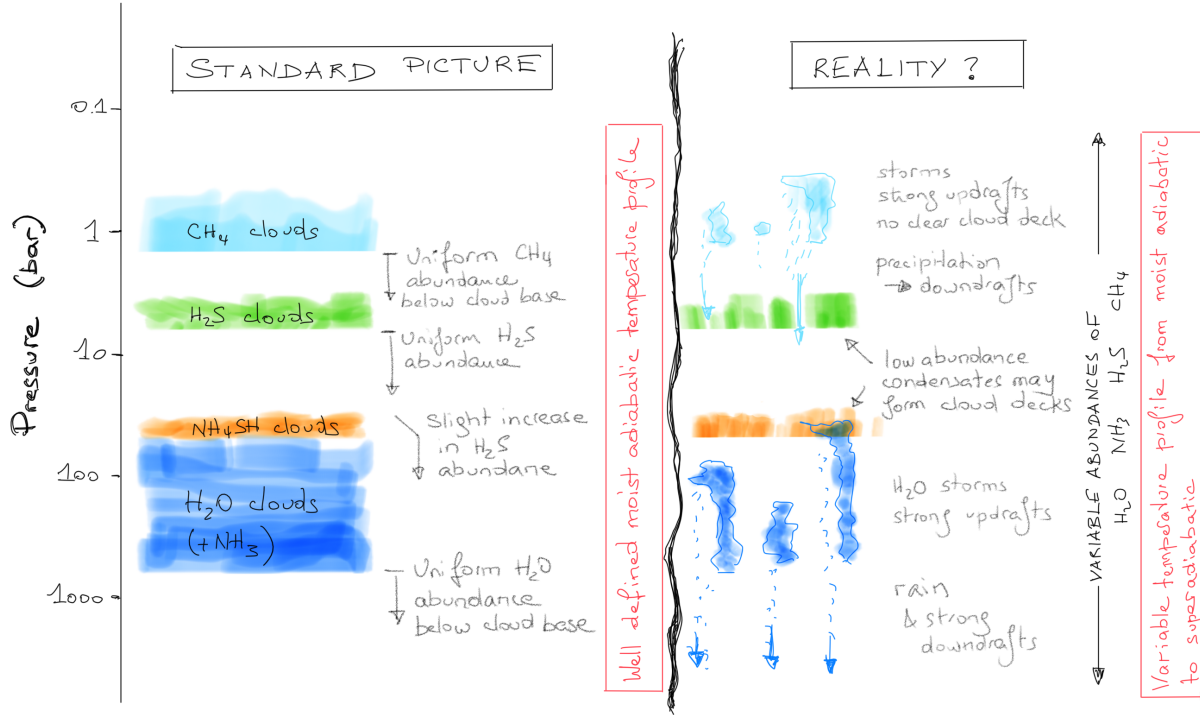 STANDARD PICTURE
REALITY ?
Pressure (bar)
0.1
1
10
100
1000
CH4 clouds
H2S clouds
NH4SH clouds
H2O clouds
(+NH3)
Uniform CH4
abundance
below cloud base
Uniform H2S
abundance
Slight increase
in H2S
abundane
Uniform H2O
abundance
below cloud base
Well defined moist adiabatic temperature profile
storms
strong updrafts
no clear cloud deck
precipitation
→ downdrafts
low abundance
condensates may
form cloud decks
H2O storms
strong updrafts
rain
& strong
downdrafts
VARIABLE ABUNDANCES OF
H2O NH3 H2S CH4
Variable temperature profile from moist adiabatic
to superadiabatic